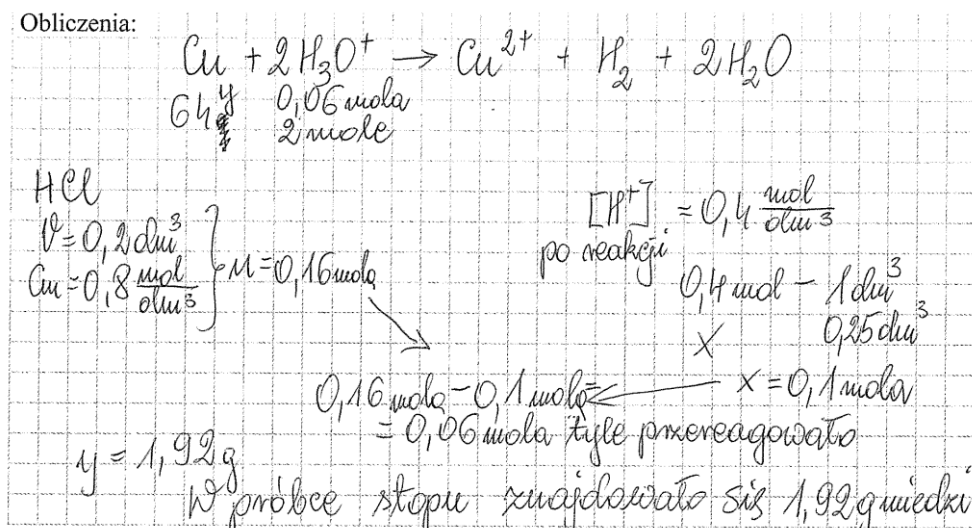 Obliczenia:
Cu + 2H₃O⁺ → Cu²⁺ + H₂ + 2H₂O
64g y 0,06 mola
2 mole
HCl
V = 0,2 dm³
Cm = 0,8 mol/dm³
n = 0,16 mola
[H⁺] = 0,4 mol/dm³
po reakcji
0,4 mol – 1 dm³
x 0,25 dm³
x = 0,1 mola
0,16 mola – 0,1 mola =
= 0,06 mola tyle przereagowało
y = 1,92g
W próbce stopu znajdowało się 1,92g miedzi